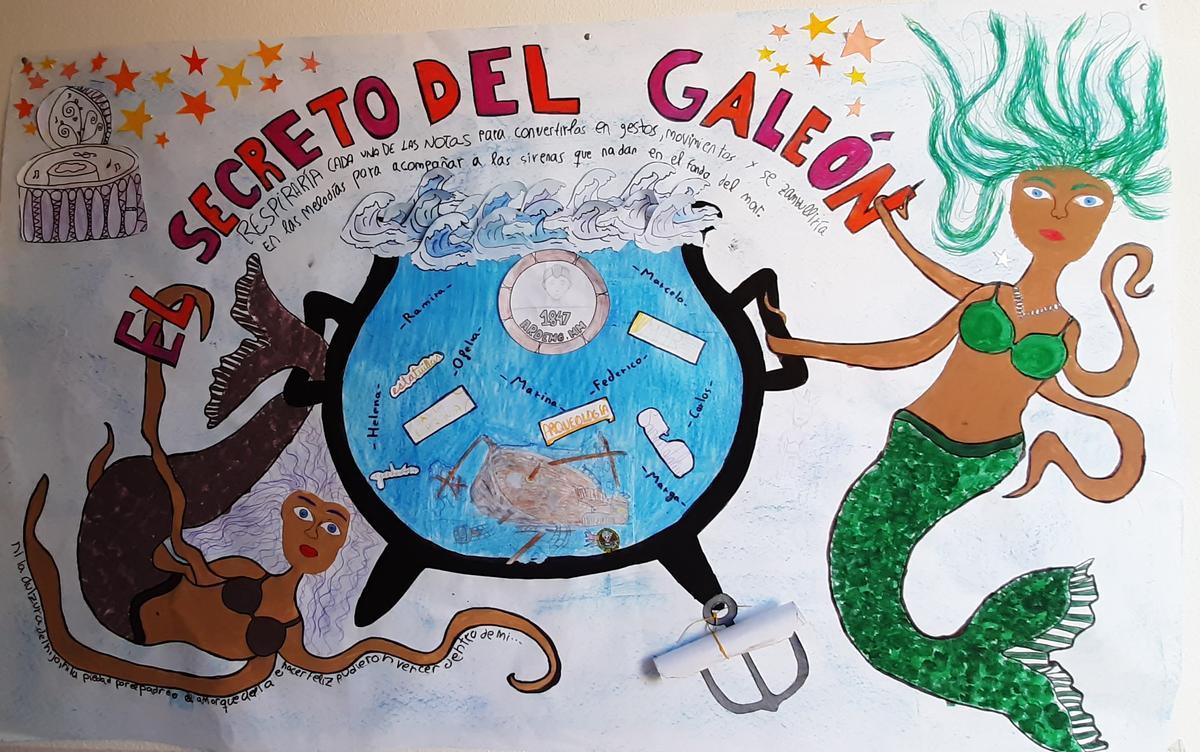 EL SECRETO DEL GALEÓN
RESPIRARÍA CADA UNA DE LAS NOTAS para convertirlas en gestos, movimientos y se zambulliría
EN las melodías para acompañar a las sirenas que nadan en el fondo del mar.
-Ramira-
-Marcelo-
1847
-Ofelia-
estatuillas
-Helena-
-Marina-
-Federico-
-Carlos-
ARQUEOLOGÍA
-Marga-
Ni la dulzura del hijo, ni la piedad por el padre o el amor que debía
hacer feliz pudieron vencer dentro de mi...